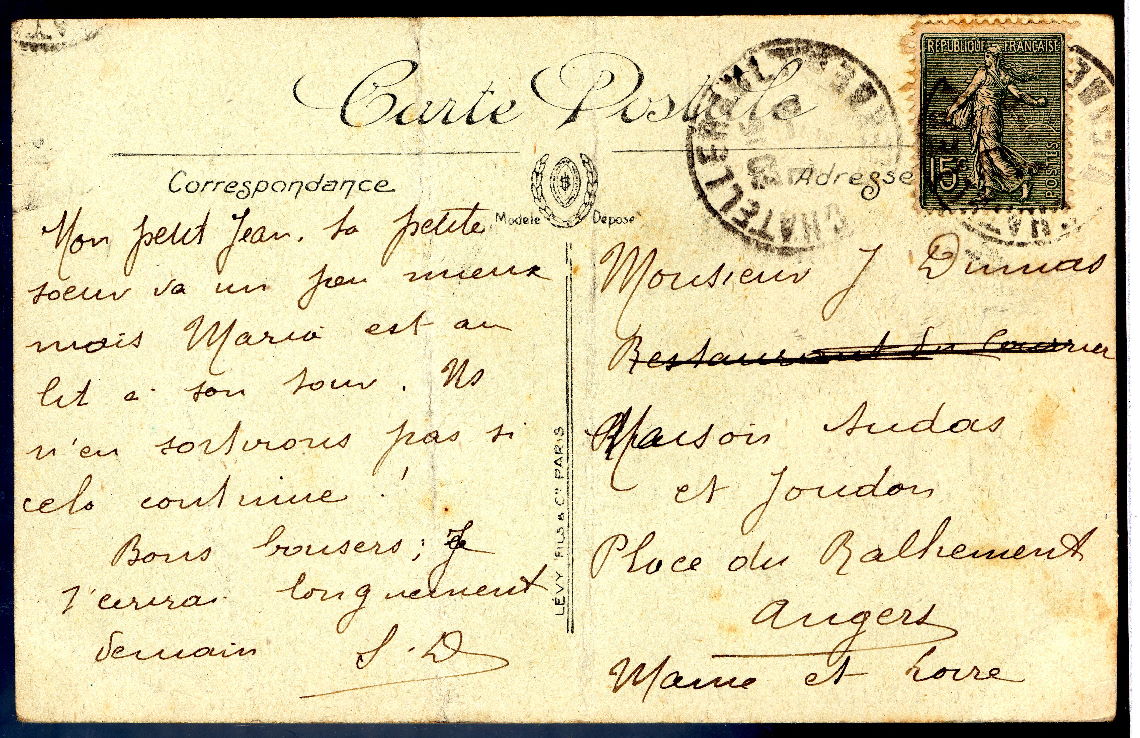 Carte Postale
Correspondance
Modèle Déposé
Adresse
RÉPUBLIQUE FRANÇAISE
15c
POSTES
CHATELLERAULT
Mon petit Jean, ta petite
soeur va un peu mieux
mais Maria est au
lit à son tour. Ns
n'en sortirons pas si
cela continue !
Bons baisers ; Je
t'ecrirai longuement
demain S. D
LÉVY FILS & Cie PARIS
Monsieur J Dumas
Restaurant du Courrier
Maison Audas
et Joudon
Place du Ralliement
Angers
Maine et Loire